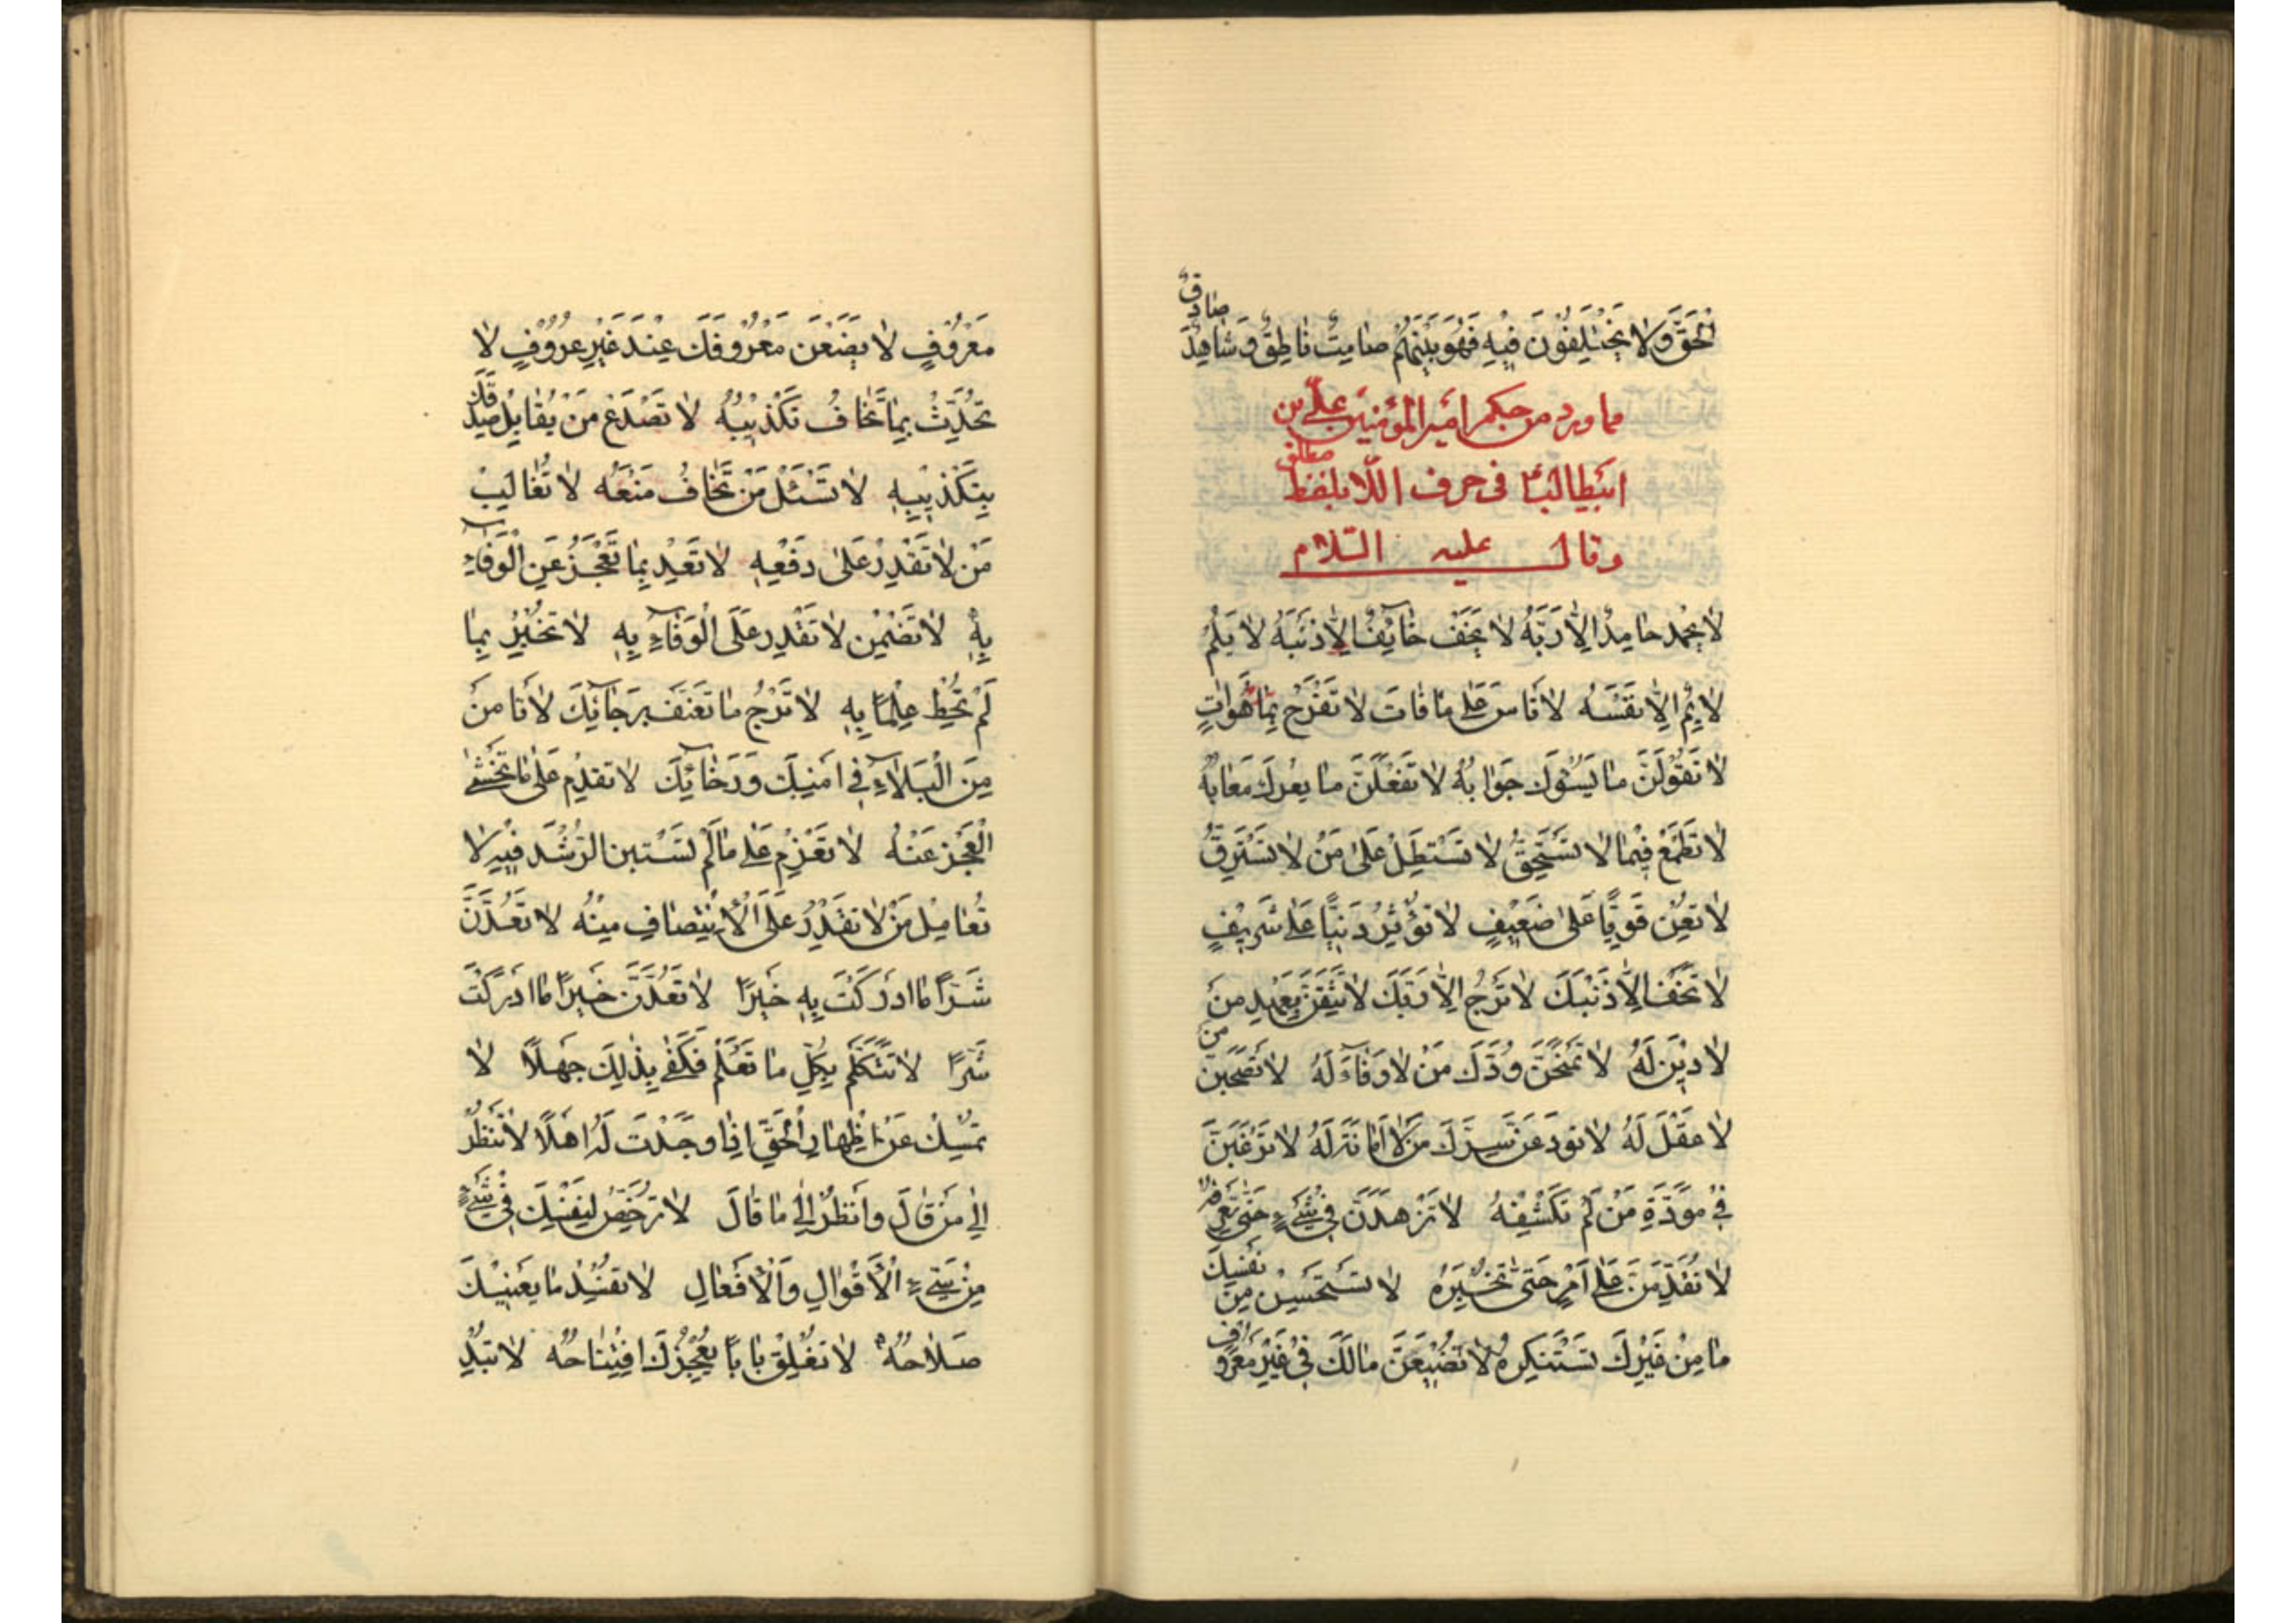 الْحَقَّ وَلَا يَخْتَلِفُونَ فِيهِ فَهُوَ بَيْنَهُمْ صَامِتٌ نَاطِقٌ وَشَاهِدٌ صَادِقٌ
مما ورد من حكم امير المؤمنين علي بن
ابيطالب في حرف اللا بلفظ مطلق
وقال عليه السلام
لا يحمد حامدٌ إلا رَبَّهُ لا يَخَف خَائِفٌ إلا ذَنْبَهُ لا يَلُم
لائِمٌ إلا نَفْسَهُ لا تَاسَ عَلى مَا فَاتَ لا تَفْرَح بِمَا هُوَ اٰتٍ
لا تَقُولَنَّ مَا يَسُوؤكَ جَوَابُهُ لا تَفْعَلَنَّ مَا يعرك مَعَابُهُ
لا تَطْمَعْ فِيمَا لا تَسْتَحِقُّ لا تَسْتَطِلْ عَلى مَنْ لا تَسْتَرِقُّ
لا تُعِنْ قَوِيًّا عَلى ضَعِيفٍ لا تُؤْثِرْ دَنِيًّا عَلى شَرِيفٍ
لا تَخَفْ إلا ذَنْبَكَ لا تَرْجُ إلا رَبَّكَ لا تَثِقَنَّ بِعَهْدِ مَنْ
لا دِيْنَ لَهُ لا تَمْنَحَنَّ وُدَّكَ مَنْ لا وَفَاءَ لَهُ لا تَصْحَبَنَّ مَنْ
لا عَقْلَ لَهُ لا تودعَنَّ سِرَّكَ مَنْ لا اَمَانَةَ لَهُ لا تَرْغَبَنَّ
فِي مَوَدَّةِ مَنْ لَمْ تَكْشِفْهُ لا تَزْهَدَنَّ فِي شَيْءٍ حَتّى تَعْرِفَهُ
لا تُقْدِمَنَّ عَلى اَمْرٍ حَتّى تَخْبُرَهُ لا تَسْتَحْسِن مِنْ نَفْسِكَ
مَا مِنْ غَيْرِكَ تَسْتَنْكِرهُ لا تُضَيِّعَنَّ مَالَكَ فِي غَيْرِ مَعْرُوفٍ
مَعْرُوْفٍ لا يضَعَنَّ مَعْرُوْفَكَ عِنْدَ غَيْرِ عرُوُوْفٍ لا
تُحَدِّثْ بِمَا تَخَافُ تَكْذِيْبَهُ لا تَصْدَع مَنْ يُقَابِلُ صِدْقَكَ
بِتَكْذِيْبِهِ لا تَسْئَلْ مَنْ تَخَافُ مَنْعَهُ لا تُغَالِبْ
مَنْ لا تَقْدِرُ عَلى دَفْعِهِ لا تَعِدْ بِمَا تَعْجَزُ عَنِ الْوَفَاءِ
بِهِ لا تَضْمَنْ لا تَقْدِر عَلَى الْوَفَاءِ بِهِ لا تُخْبِرْ بِمَا
لَمْ تُحِطْ عِلْمًا بِهِ لا تَرْجُ مَا تعنف بِرَجَائِكَ لا تَامَنْ
مِنَ الْبَلاءِ فِي اَمْنِكَ وَرَخَائِكَ لا تقدِم عَلى مَا تَخْشى
الْعَجْزَ عَنْهُ لا تَعْزِم عَلى مَا لَمْ تَسْتبن الرُّشْدَ فِيْهِ لا
تُعَامِل مَنْ لا تَقْدِرُ عَلَى الاِنْتِصَافِ مِنْهُ لا تَعُدَّنَّ
شَرًّا مَا ادْرَكْتَ بِهِ خَيْرًا لا تَعُدَّنَّ خَيْرًا مَا ادْرَكْتَ
شَرًّا لا تَتَكَلَّم بِكُلِّ مَا تَعْلَم فَكَفى بِذلِكَ جَهْلًا لا
تُمْسِك عَنْ اِظْهَارِ الْحَقِّ اِذَا وَجَدْتَ لَهُ اهْلًا لا تَنْظُر
اِلى مَنْ قَالَ وَانْظُر اِلى مَا قَالَ لا تُرَخِّص لِنَفْسِكَ فِي شَيْءٍ
مِنْ سَيِّءِ الْاَقْوَالِ وَالْاَفْعَالِ لا تفسِد مَا يَعْنِيْكَ
صَلاحُهُ لا تغْلِقْ بَابًا يُعْجِزُكَ افتِتَاحُه لا تُبْدِ